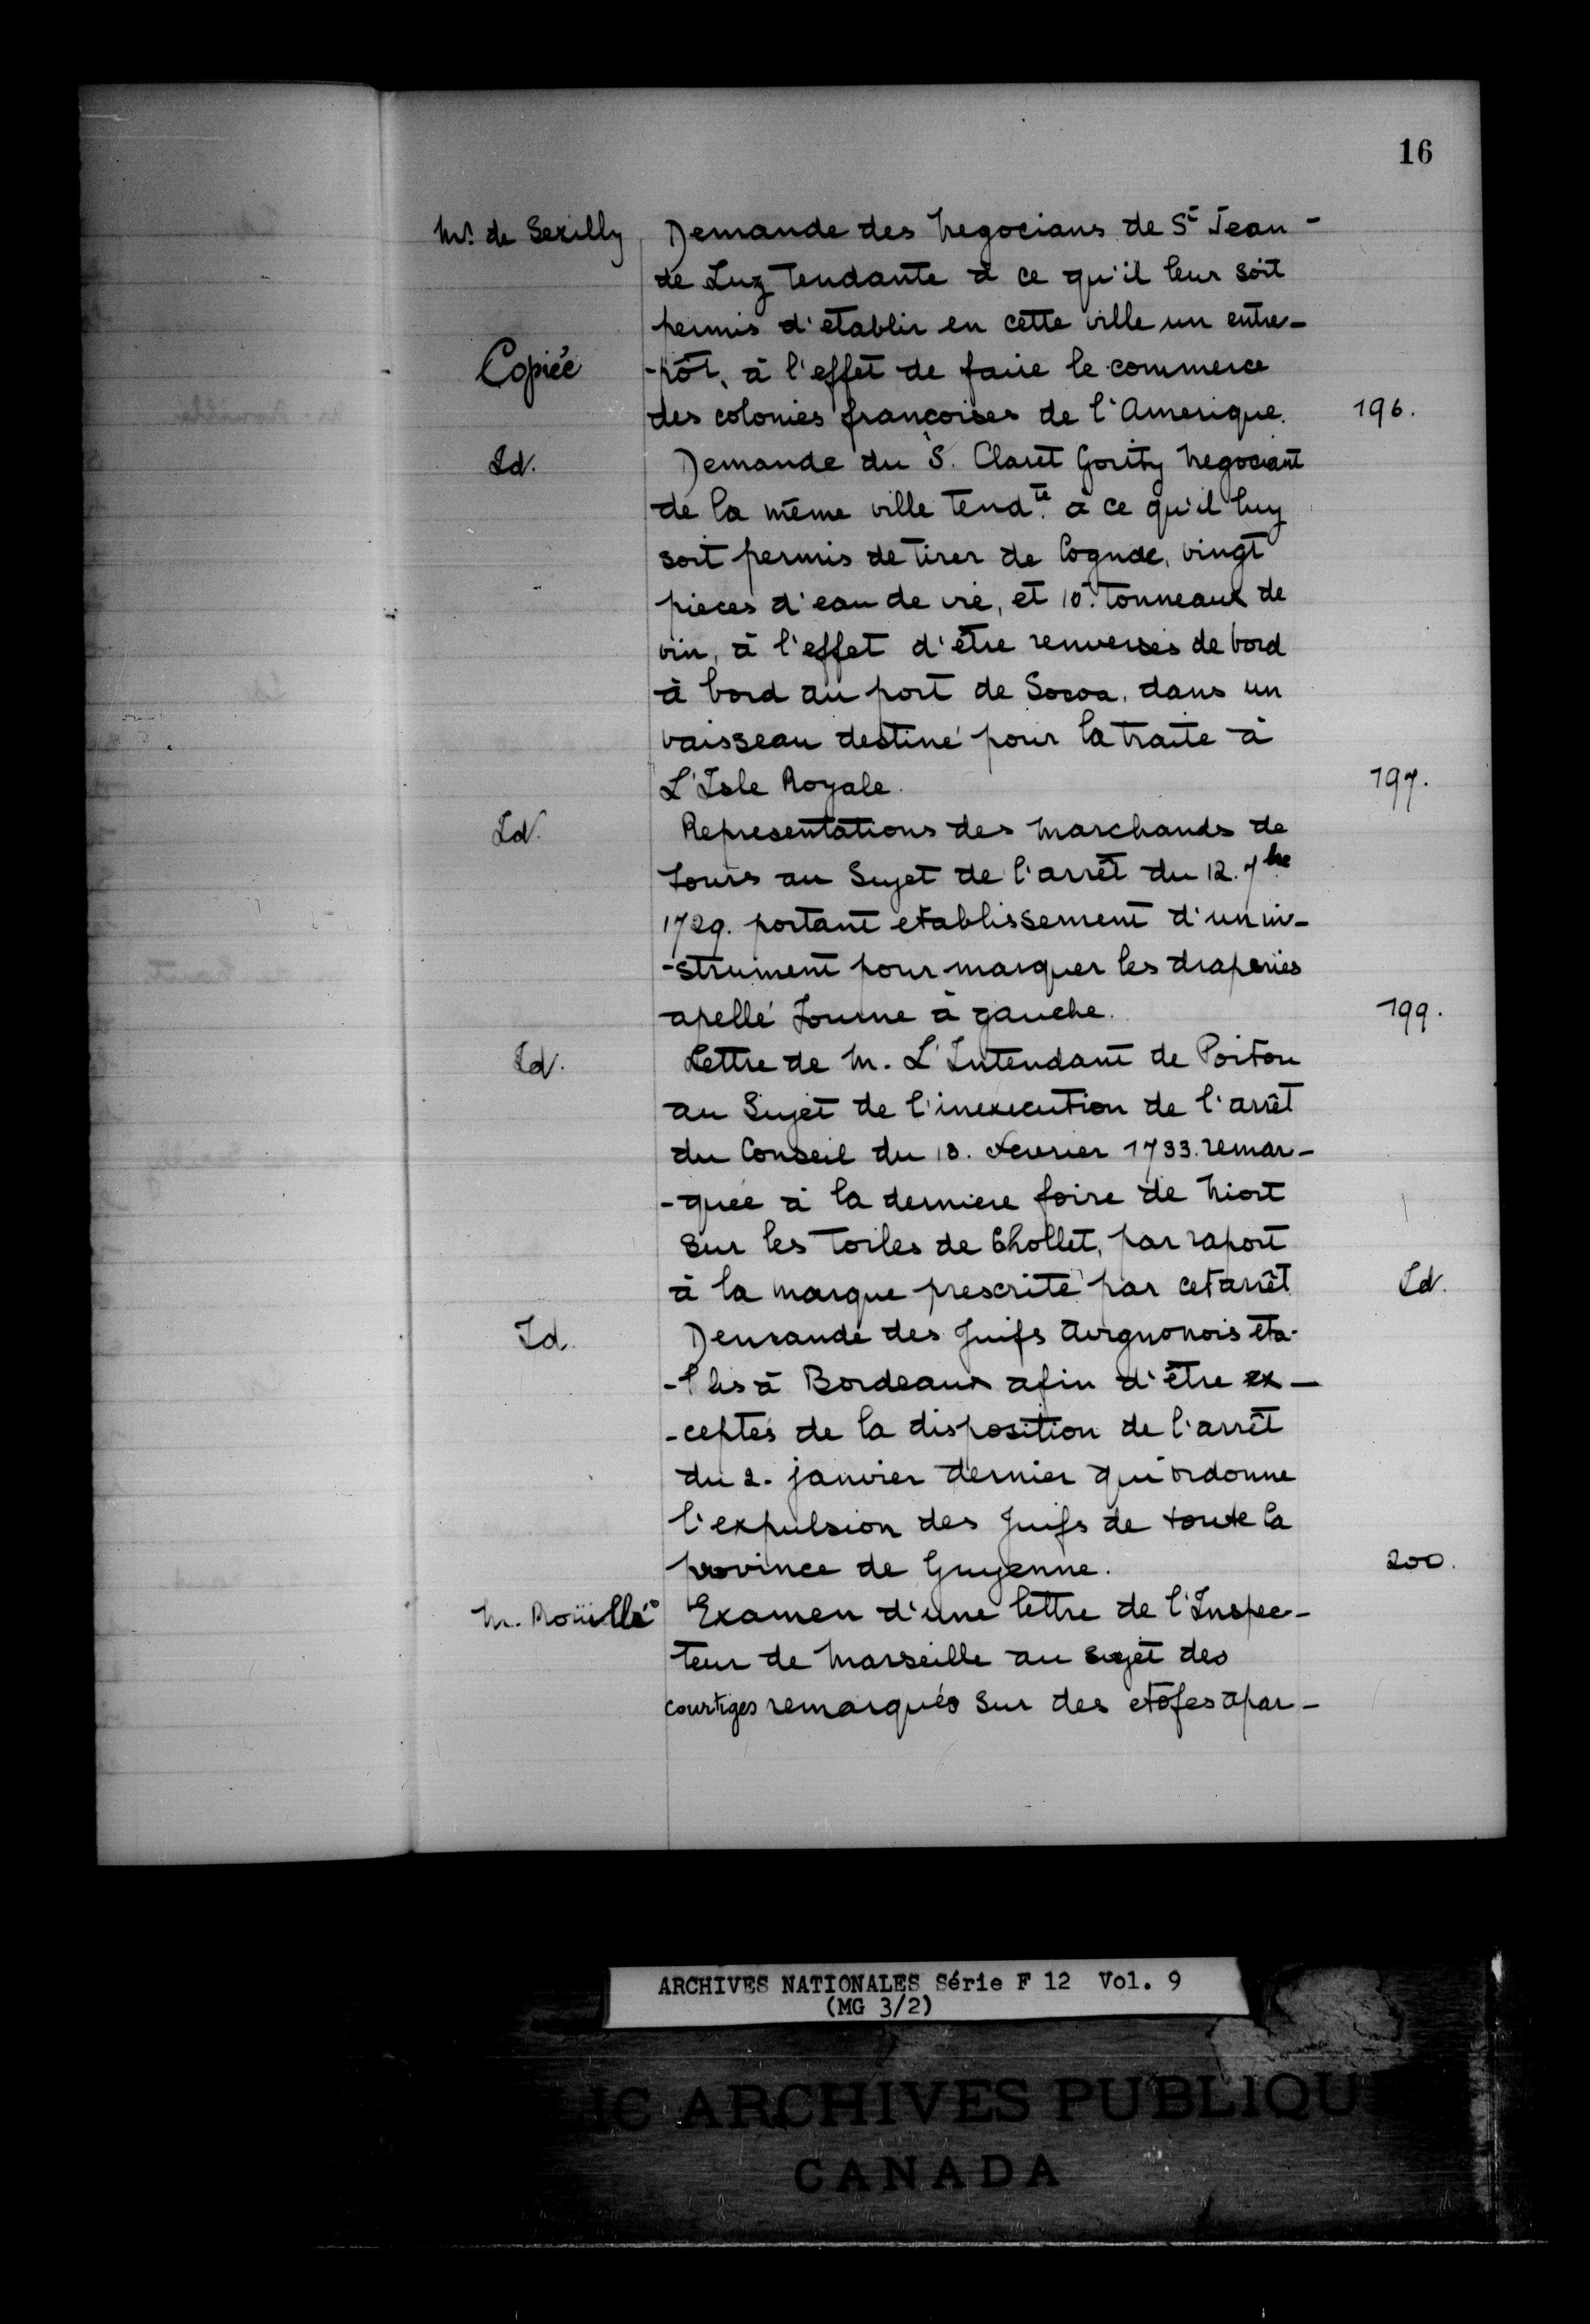 16
Mr. de Serilly Demande des Negocians de St Jean-
de Luz tendante à ce qu'il leur soit
permis d'etablir en cette ville un entre-
Copiée -pôt, à l'effet de faire le commerce
des colonies françoises de l'Amerique. 196.
Id. Demande du S. Claret Gority Negociant
de la même ville tend.te à ce qu'il luy
soit permis de tirer de Cognac, vingt
pieces d'eau de vie, et 10. tonneaux de
vin, à l'effet d'être renversés de bord
à bord au port de Socoa, dans un
vaisseau destiné pour la traite à
L'Isle Royale. 197.
Id. Representations des Marchands de
Tours au Sujet de l'arrêt du 12. 7bre
1729. portant etablissement d'un in-
-strument pour marquer les draperies
apellé Tourne à gauche. 199.
Id. Lettre de M. L'Intendant de Poitou
au Sujet de l'inexecution de l'arrêt
du Conseil du 13. Fevrier 1733. remar-
-quée à la derniere foire de Niort
sur les Toiles de Chollet, par raport
à la marque prescrite par cet arrêt Id.
Id. Demande des Juifs Avignonois éta-
-blis à Bordeaux afin d'être ex-
-ceptés de la disposition de l'arrêt
du 2. janvier dernier qui ordonne
l'expulsion des Juifs de toute la
province de Guyenne. 200.
M. Roüillé Examen d'une lettre de l'Inspec-
teur de Marseille au sujet des
courtiges remarqués sur des etofes apar-
ARCHIVES NATIONALES Série F 12 Vol. 9
(MG 3/2)
IC ARCHIVES PUBLIQU
CANADA